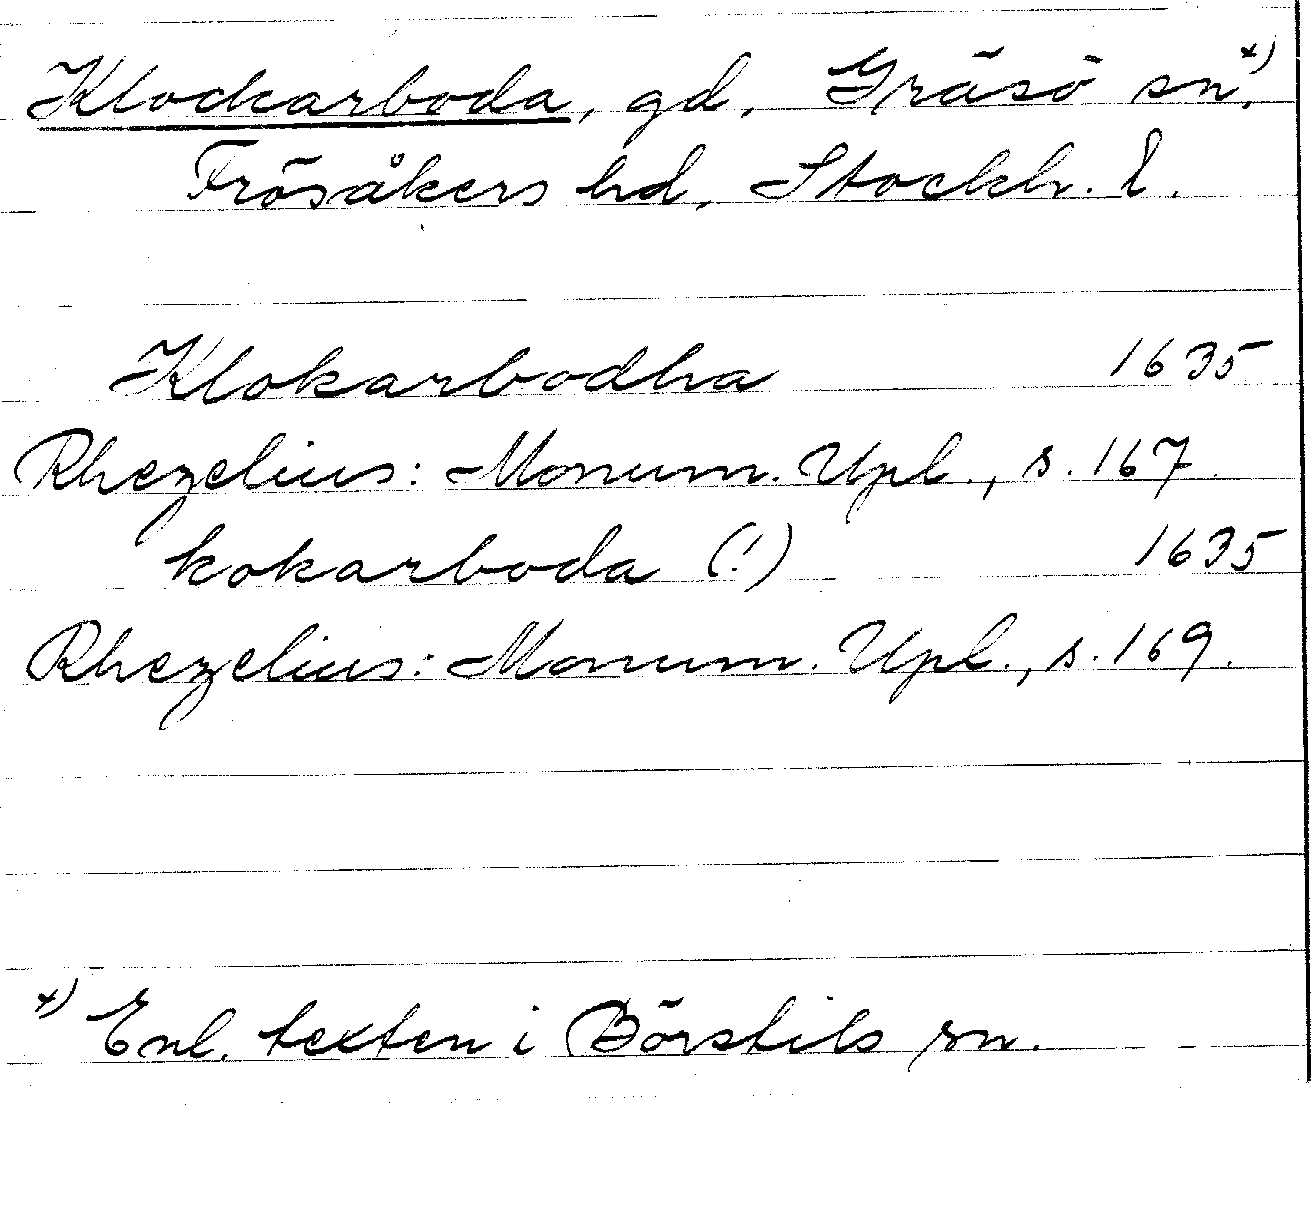 Klockarboda, gd, Gräsö sn,x)
Frösåkers hd, Stockh. l.
Klokarbodha 1635
Rhezelius: Monum. Upl., s. 167.
kokarboda (!) 1635
Rhezelius: Monum. Upl., s. 169.
x) Enl. texten i Börstils sn.